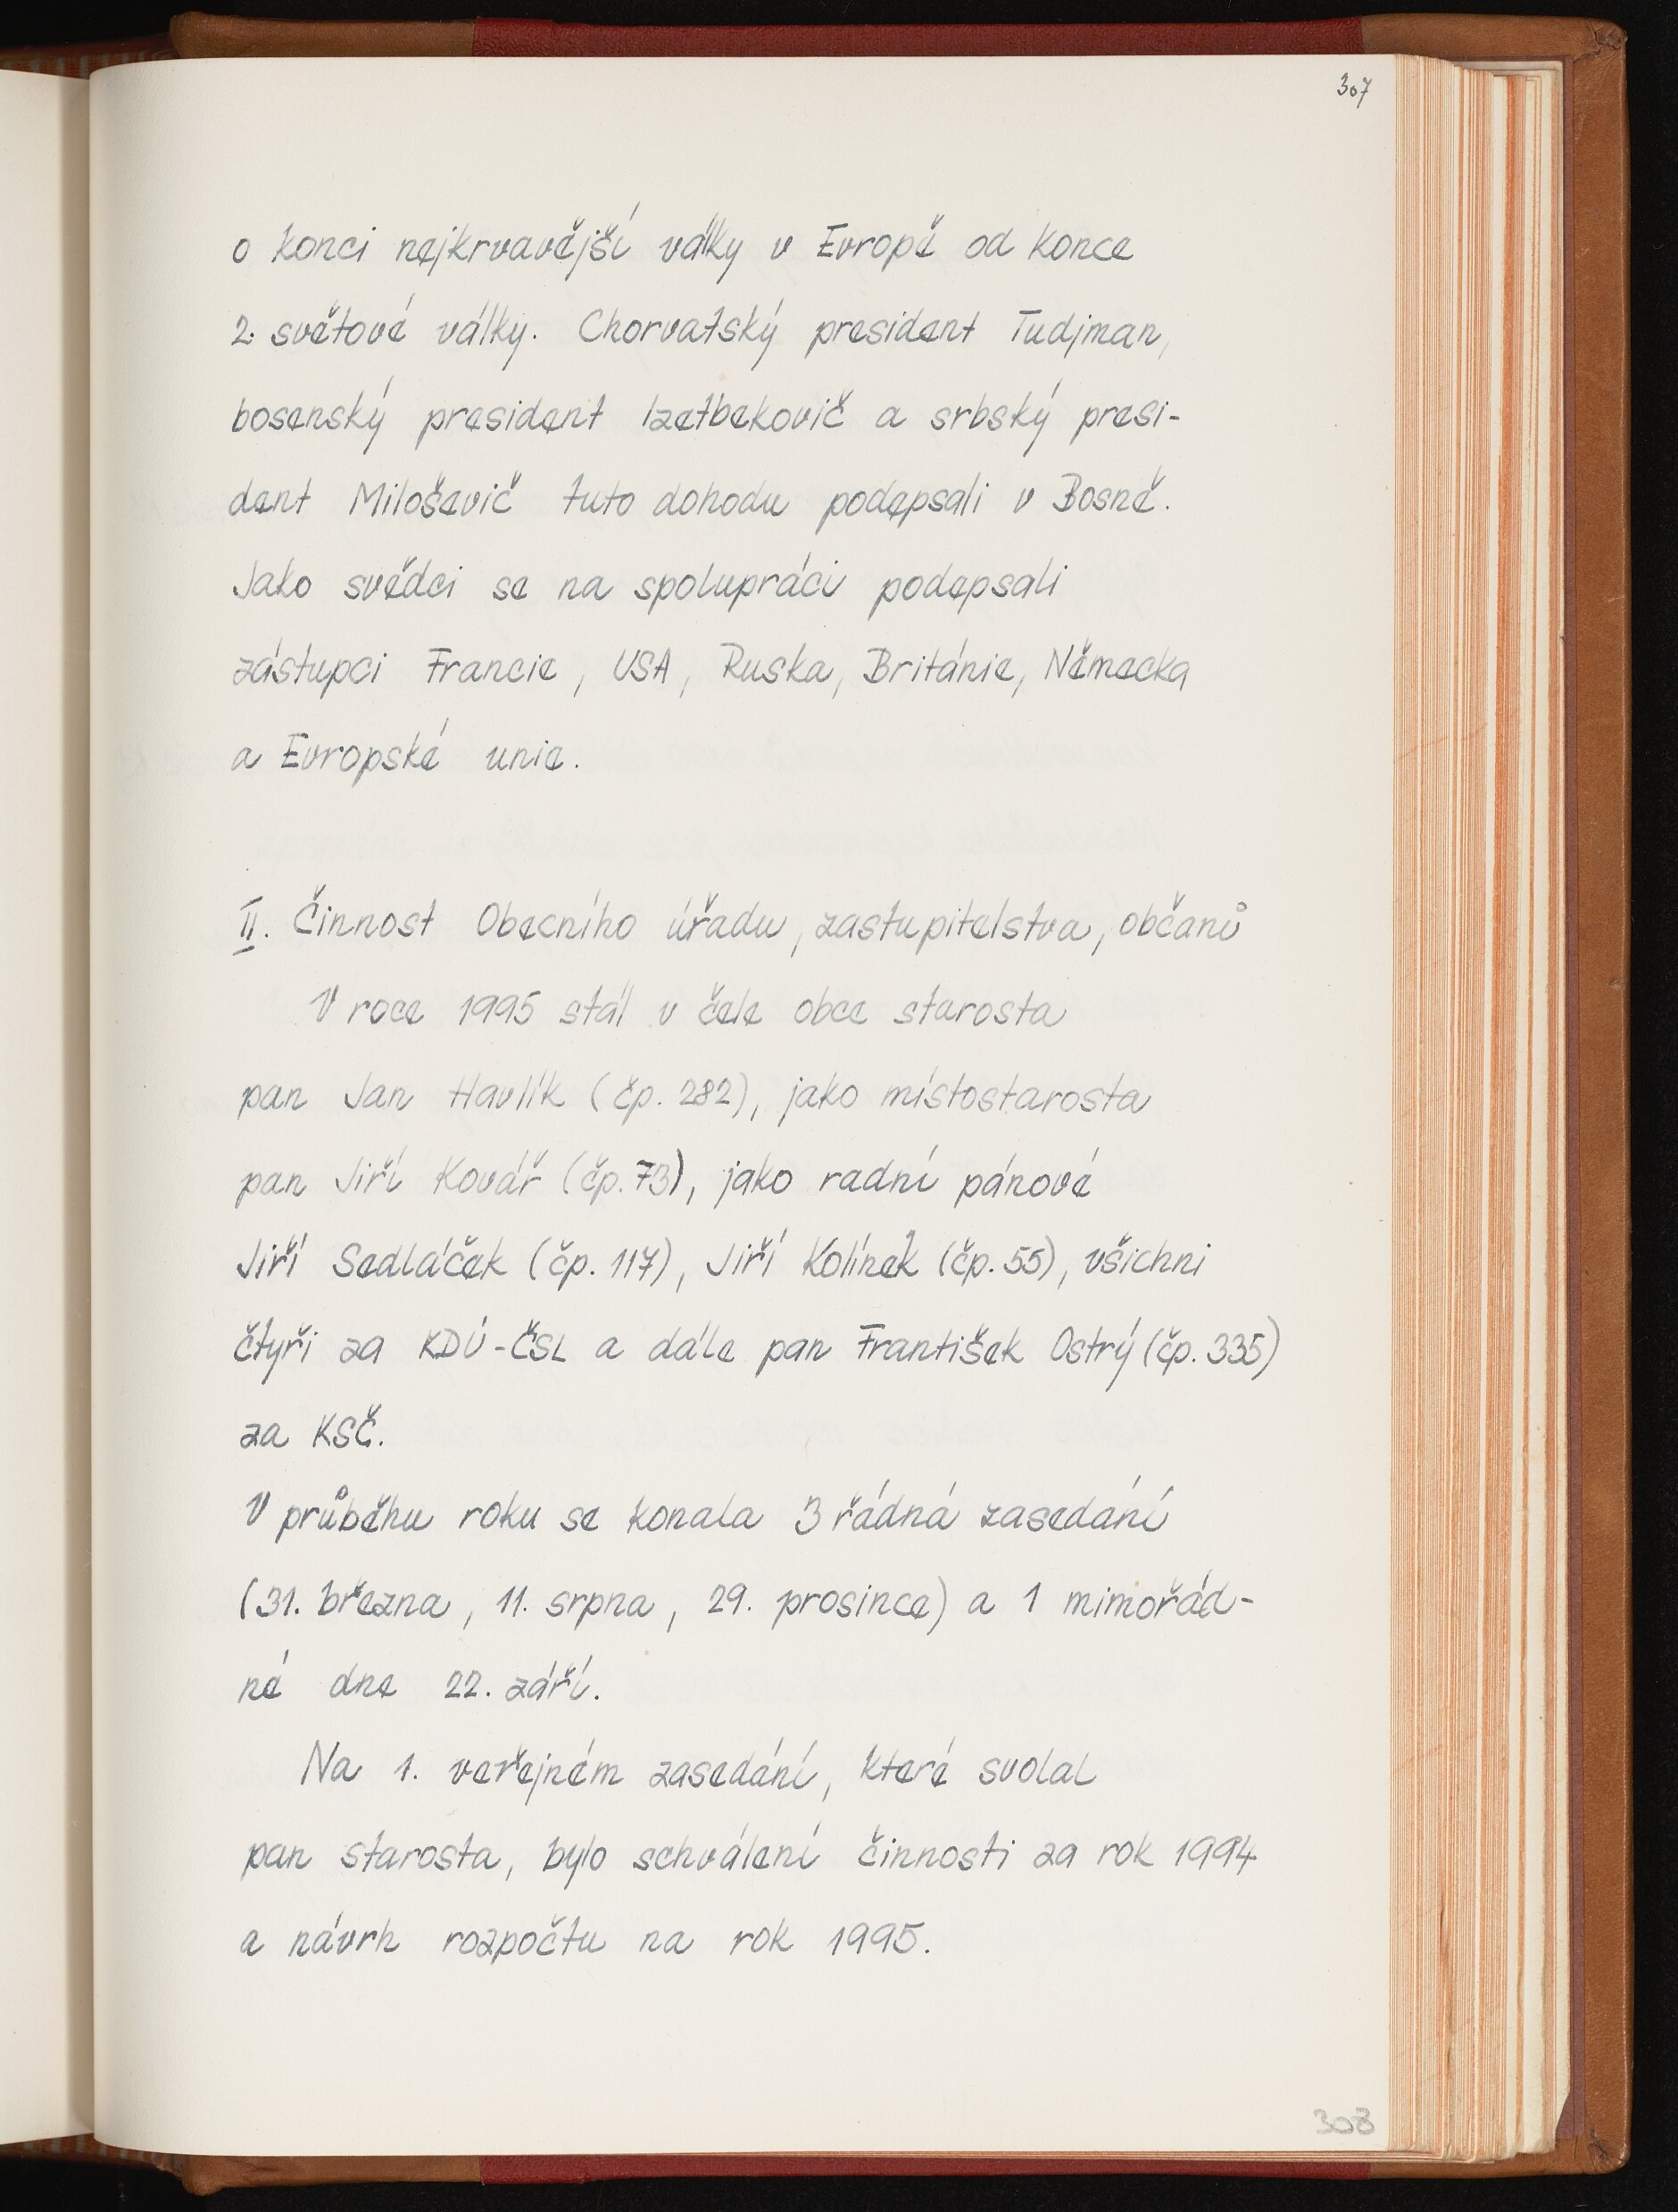 307
o konci nejkrvavější války v Evropě od konce
2. světové války. Chorvatský president Tudjman,
bosenský president Izetbekovič a srbský presi-
dent Miloševič tuto dohodu podepsali v Bosně.
Jako svědci se na spolupráci podepsali
zástupci Francie, USA, Ruska, Británie, Německa
a Evropské unie.
II. Činnost Obecního úřadu, zastupitelstva, občanů
V roce 1995 stál v čele obce starosta
pan Jan Havlík (čp. 282), jako místostarosta
pan Jiří Kovář (čp. 73), jako radní pánové
Jiří Sedláček (čp. 117), Jiří Kolínek (čp. 55), všichni
čtyři za KDÚ-ČSL a dále pan František Ostrý (čp. 335)
za KSČ.
V průběhu roku se konala 3 řádná zasedání
(31. března, 11. srpna, 29. prosince) a 1 mimořád-
né dne 22. září.
Na 1. veřejném zasedání, které svolal
pan starosta, bylo schválení činnosti za rok 1994
a návrh rozpočtu na rok 1995.
308